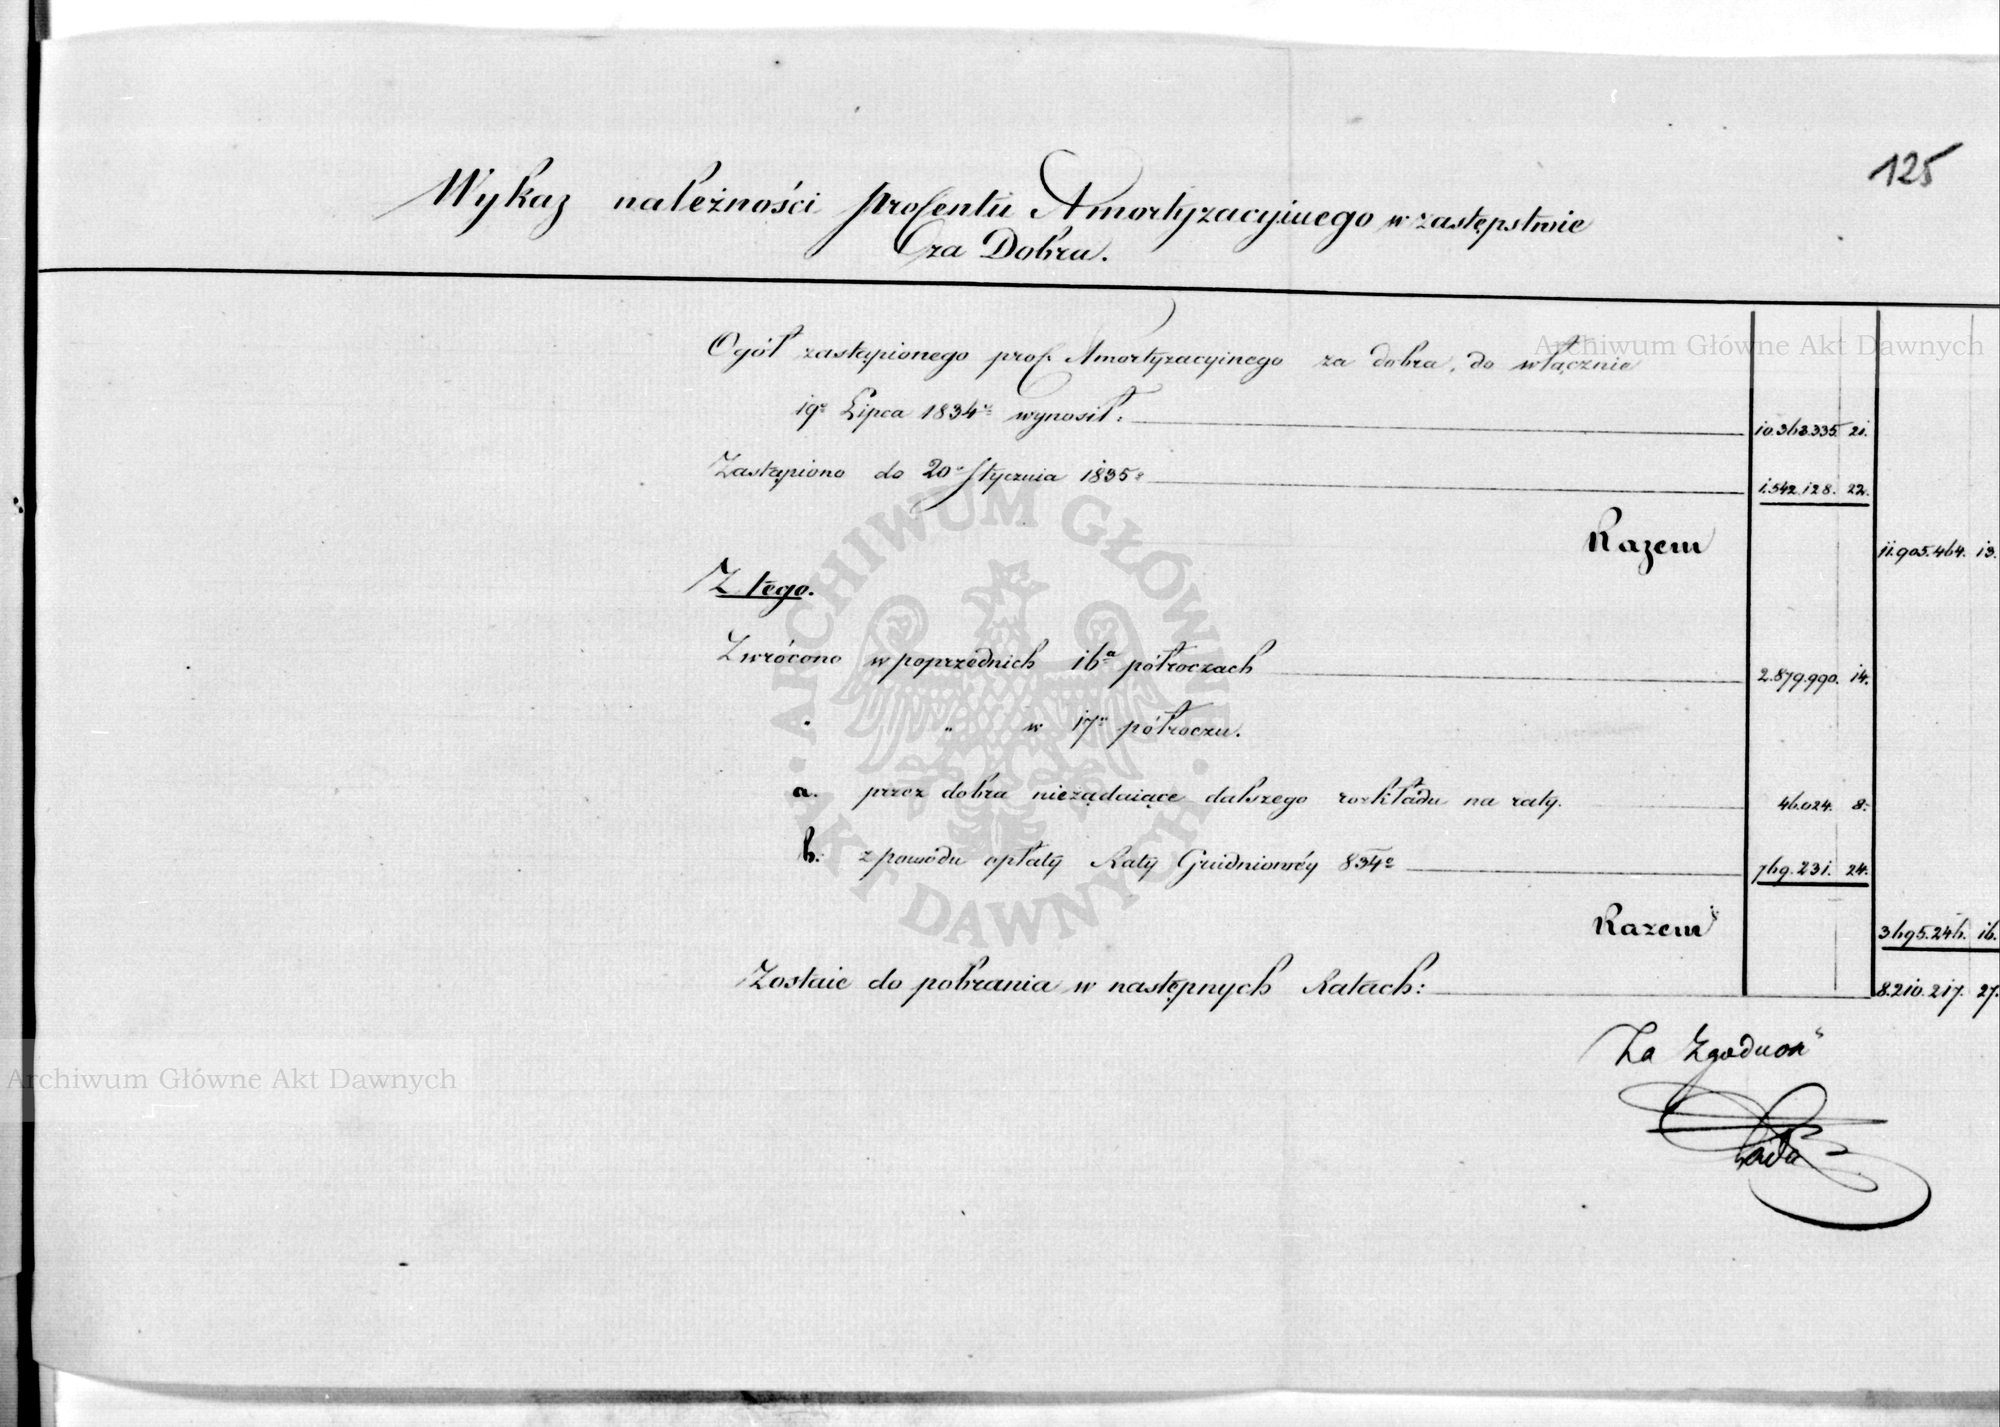 125
Wykaz należności procentu Amortyzacyinego w zastępstwie
za Dobra.
Ogół zastąpionego proc. Amortyzacyinego za dobra, do włącznie
19º Lipca 1834 r. wynosił: 10.363.335 21.
Zastąpiono do 20º Stycznia 1835 r. 1.542.128. 22.
Razem 11.905.464. 13.
Z tego.
Zwrócono w poprzednich 16ª półroczach 2.879.990. 14.
" " w 17º półroczu.
a. przez dobra nieżądaiące dalszego rozkładu na raty. 46.024. 8.
b. z powodu opłaty Raty Grudniowéy 834 r. 769.231. 24.
Razem 3.695.246. 16.
Zostaie do pobrania w następnych Ratach: 8.210.217. 27.
Za Zgodność
Archiwum Główne Akt Dawnych
Archiwum Główne Akt Dawnych
ARCHIWUM GŁÓWNE · AKT DAWNYCH ·